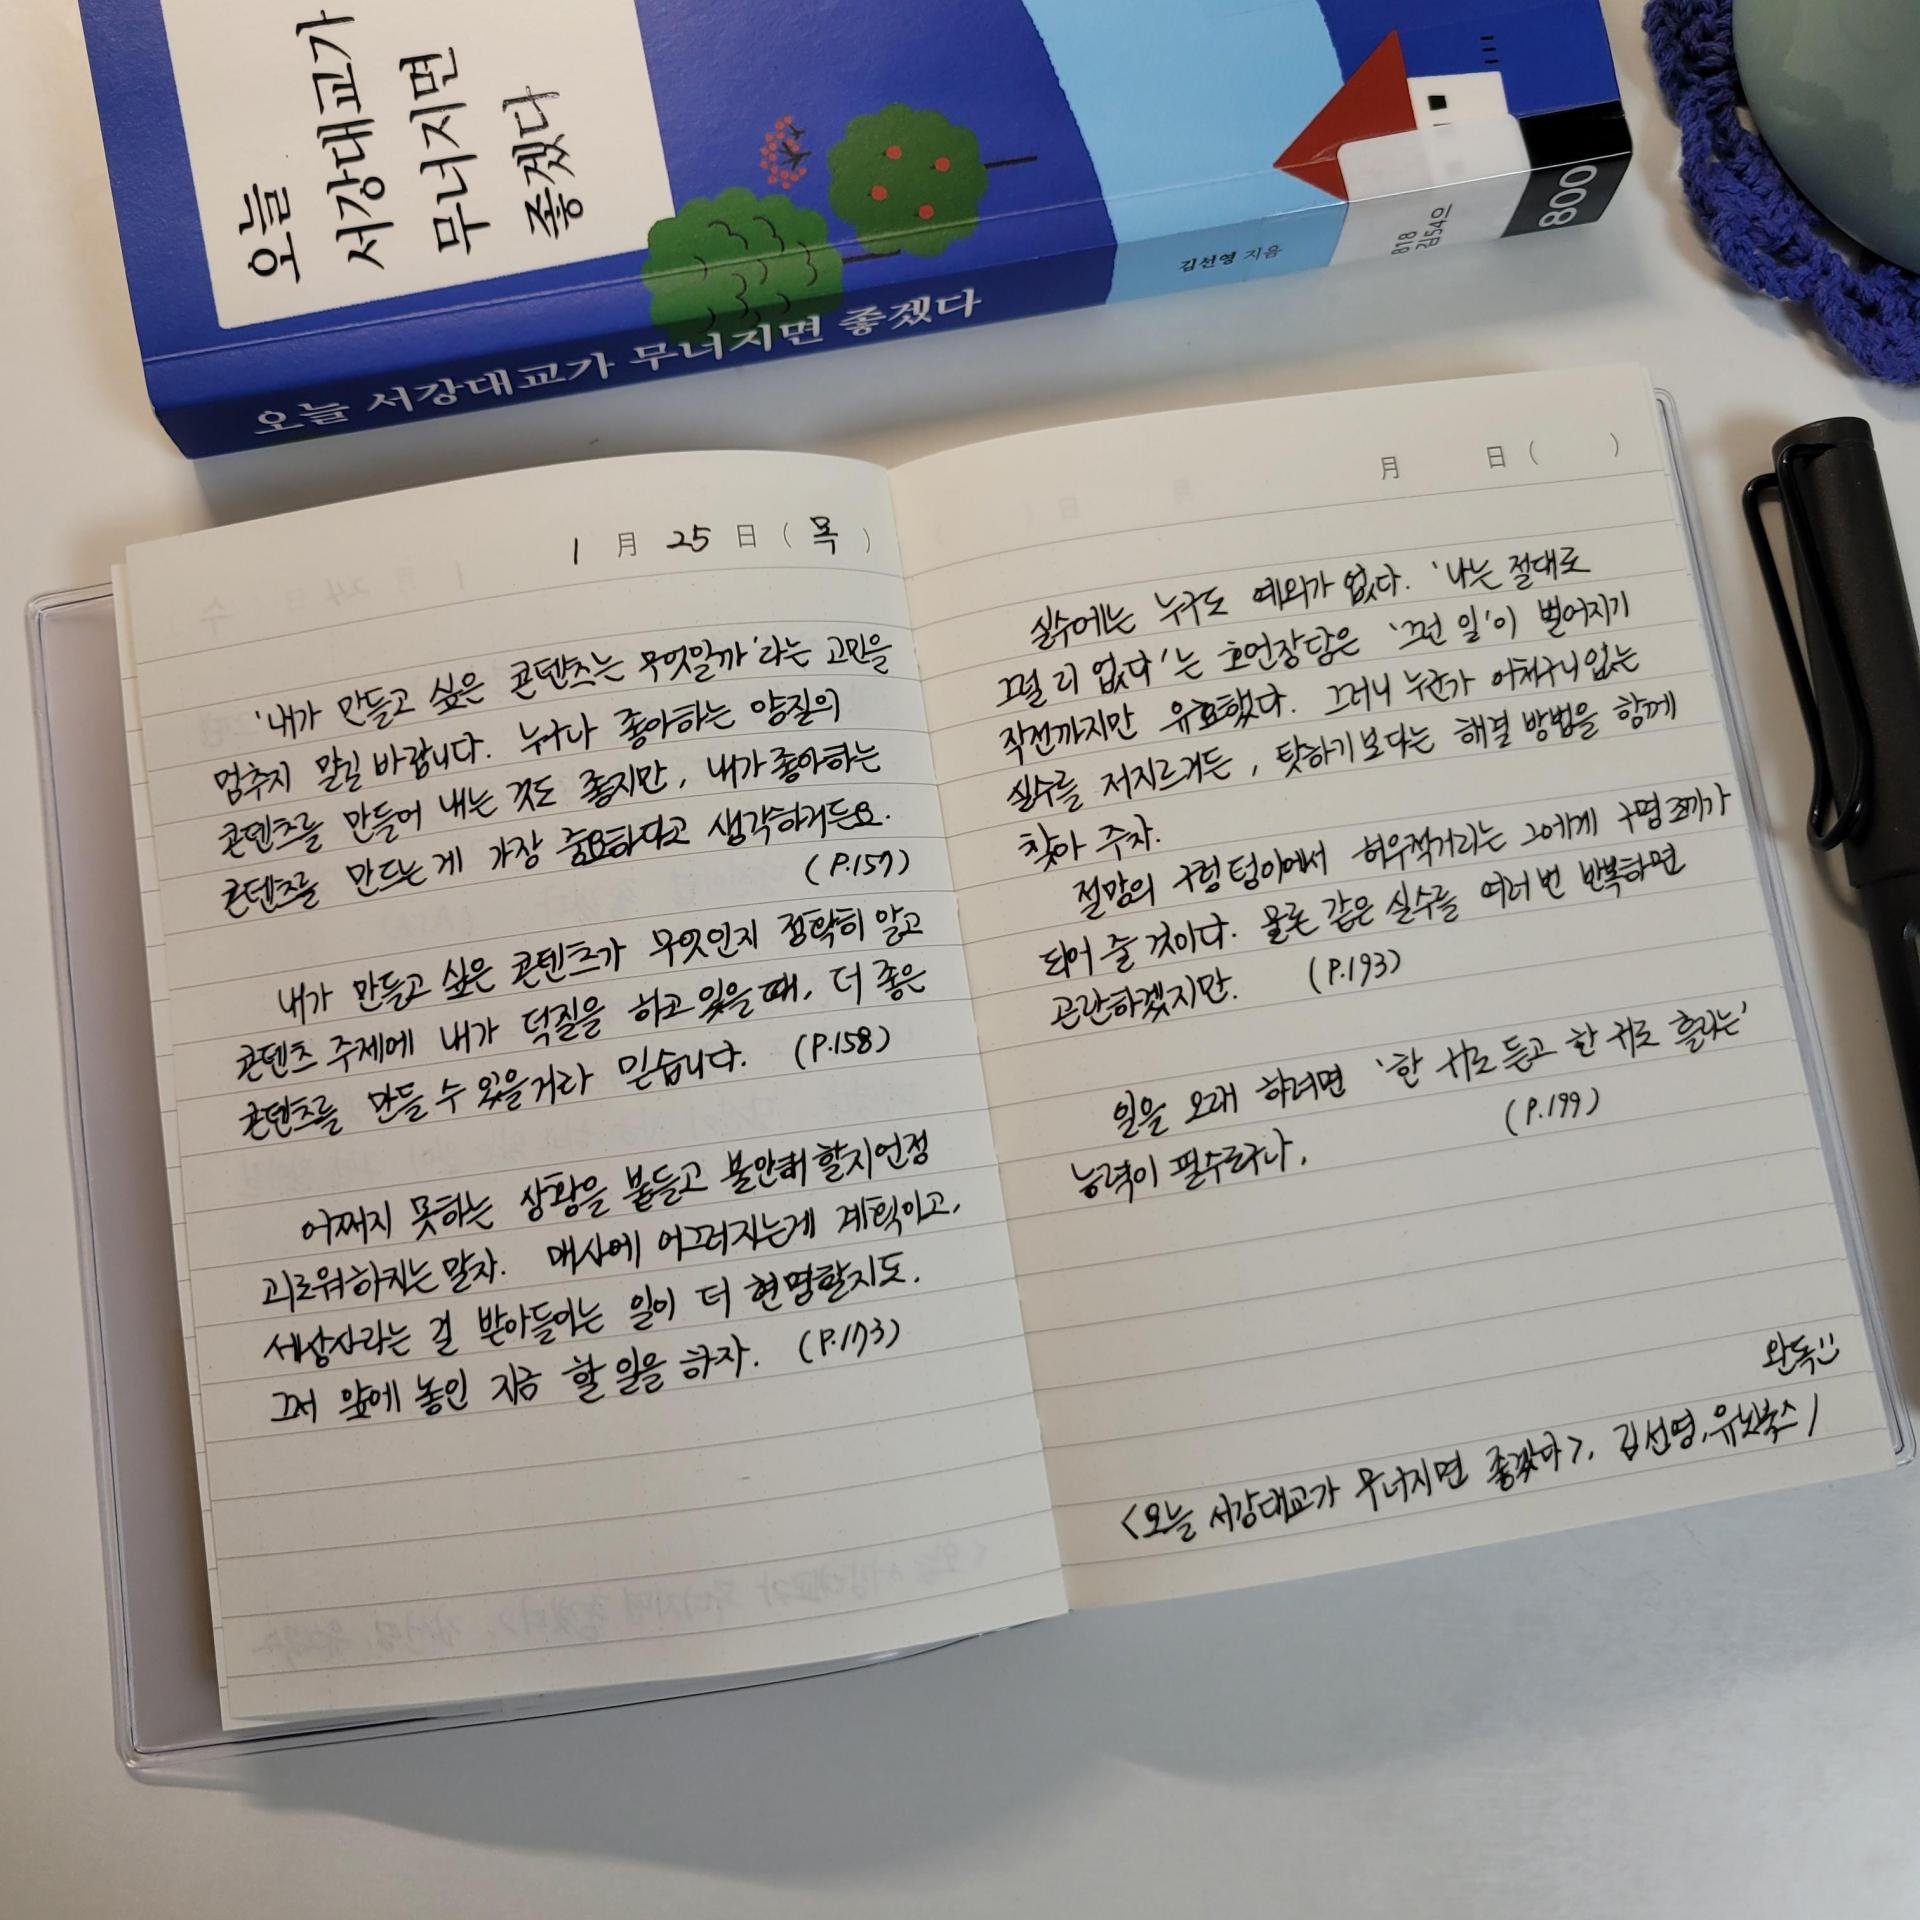 오늘
서강대교가
무너지면
좋겠다
오늘 서강대교가 무너지면 좋겠다
김선영 지음
818
김54오
800
1 月 25 日 ( 목 )
'내가 만들고 싶은 콘텐츠는 무엇일까'라는 고민을
멈추지 말길 바랍니다. 누구나 좋아하는 양질의
콘텐츠를 만들어 내는 것도 좋지만, 내가 좋아하는
콘텐츠를 만드는 게 가장 중요하다고 생각하거든요.
(P.157)
내가 만들고 싶은 콘텐츠가 무엇인지 정확히 알고
콘텐츠 주제에 내가 덕질을 하고 있을 때, 더 좋은
콘텐츠를 만들 수 있을거라 믿습니다. (P.158)
어쩌지 못하는 상황을 붙들고 불안해 할지언정
괴로워하지는 말자. 매사에 어그러지는게 계획이고,
세상사라는 걸 받아들이는 일이 더 현명할지도.
그저 앞에 놓인 지금 할 일을 하자. (P.173)
月 日 ( )
실수에는 누구도 예외가 없다. '나는 절대로
그럴 리 없다'는 호언장담은 '그런 일'이 벌어지기
직전까지만 유효했다. 그러니 누군가 어처구니없는
실수를 저지르거든, 탓하기보다는 해결 방법을 함께
찾아 주자.
절망의 구렁텅이에서 허우적거리는 그에게 구명조끼가
되어 줄 것이다. 물론 같은 실수를 여러 번 반복하면
곤란하겠지만. (P.193)
일을 오래 하려면 '한 귀로 듣고 한 귀로 흘리는'
능력이 필수로구나. (P.199)
완독
<오늘 서강대교가 무너지면 좋겠다>, 김선영, 유노북스 /